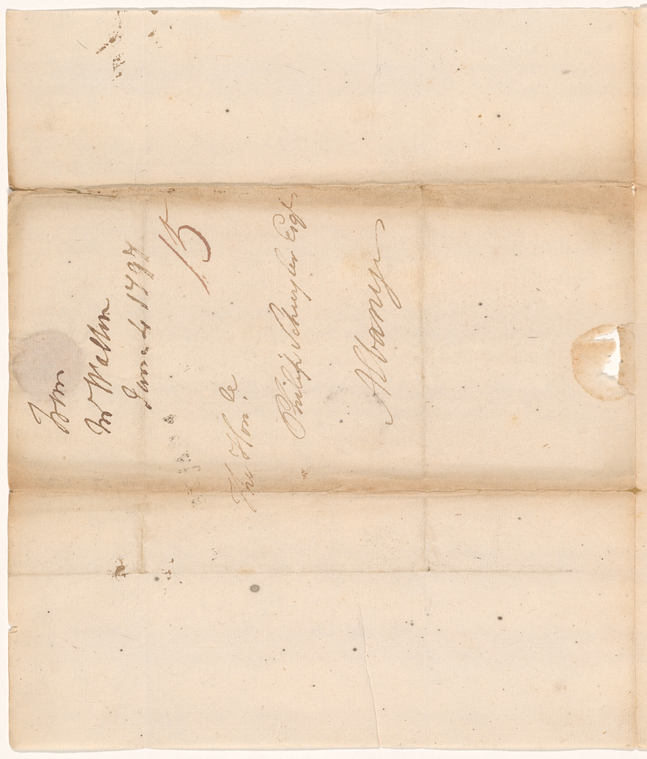 from
Mr Walton
June 4 1797
15
The Hon.le
Philip Schuyler Esqr
Albany